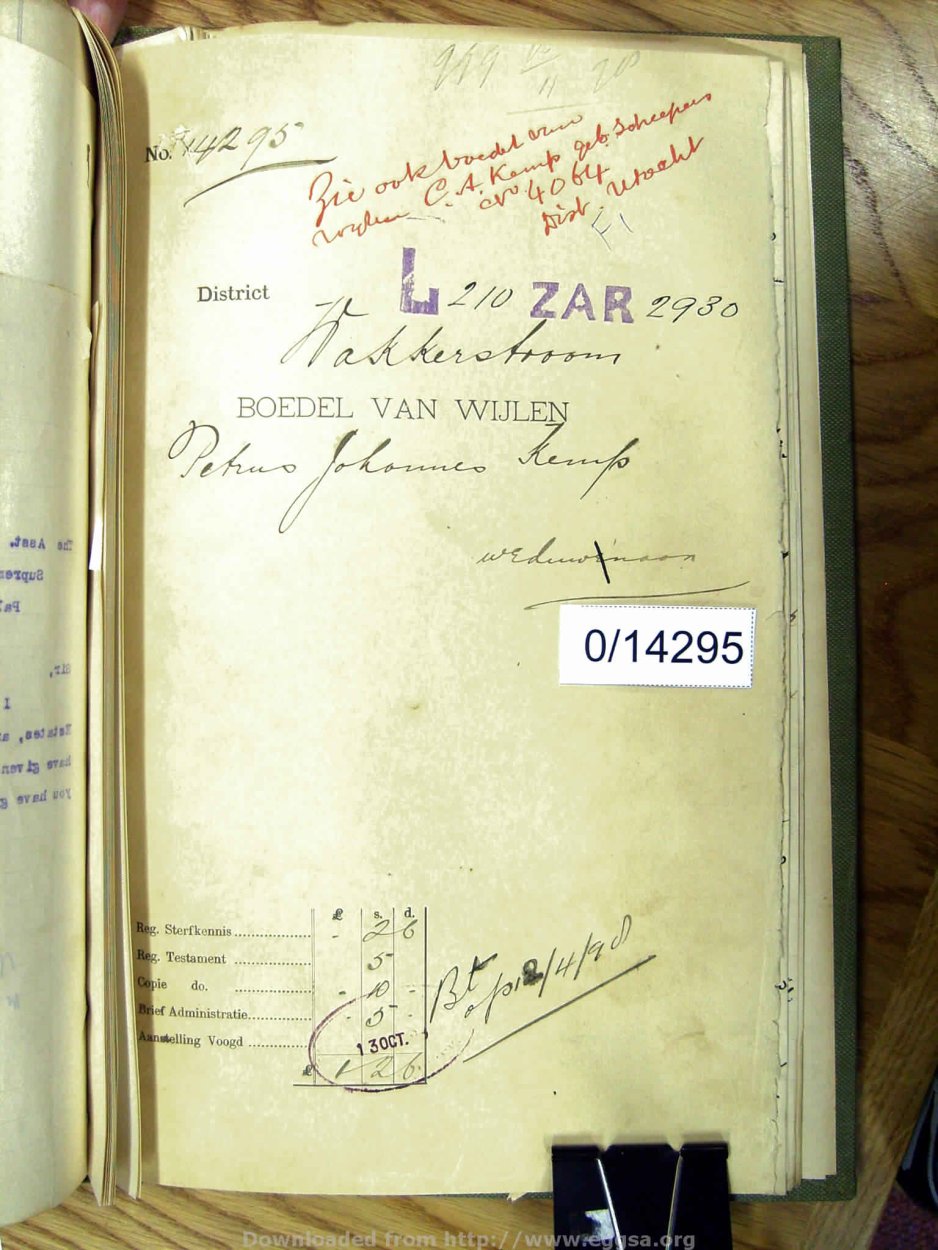 969 12/11 98
No. 14295
Zie ook boedel van
wijlen C. A. Kemp geb. Scheepers
No 4064
Dist. Utrecht
F1
L 210 ZAR 2930
District
Wakkerstroom
BOEDEL VAN WIJLEN
Petrus Johannes Kemp
weduwinaar
0/14295
£ s. d.
Reg. Sterfkennis - 2 6
Reg. Testament 5
Copie do. - 10 -
Brief Administratie - 5 -
Aanstelling Voogd
13 OCT.
£ 1 2 6
Bt op 12/4/98
The Asst.
Supre
Pa
Sir,
I
Estates, a
have given
you have g
Downloaded from http://www.eggsa.org